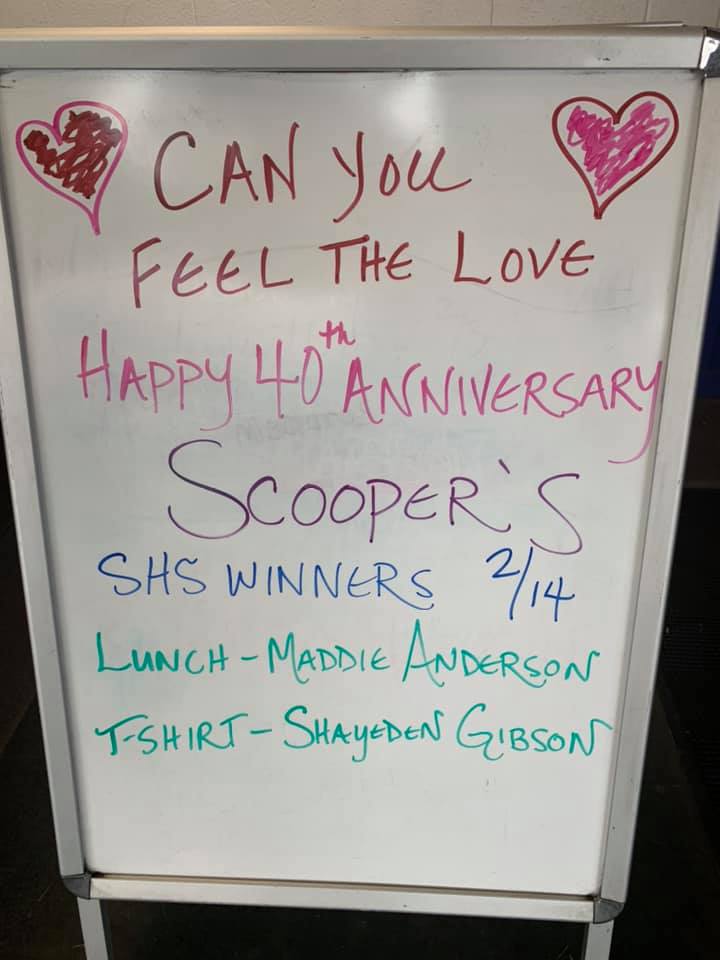 CAN YOU
FEEL THE LOVE
HAPPY 40th ANNIVERSARY
SCOOPER'S
SHS WINNERS 2/14
LUNCH - MADDIE ANDERSON
T-SHIRT - SHAYEDEN GIBSON